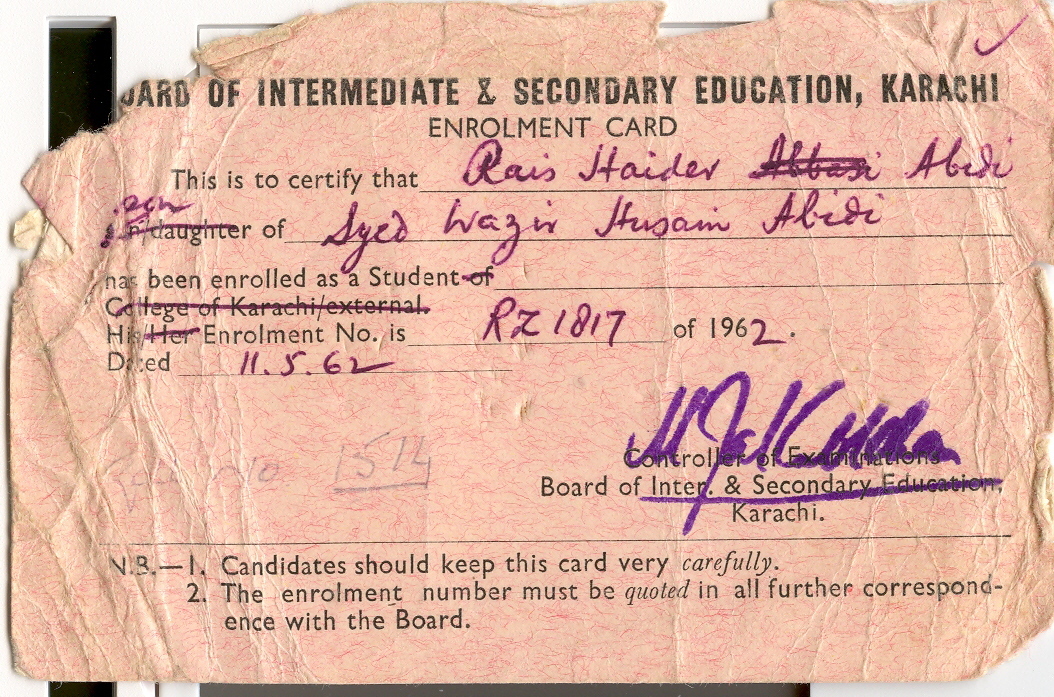 OARD OF INTERMEDIATE & SECONDARY EDUCATION, KARACHI
ENROLMENT CARD
This is to certify that Rais Haider Abbasi Abidi
son
/daughter of Syed Wazir Husain Abidi
has been enrolled as a Student of
College of Karachi/external.
His/Her Enrolment No. is RZ 1817 of 1962.
Dated 11.5.62
514
Controller of Examinations
Board of Inter. & Secondary Education,
Karachi.
N.B.—1. Candidates should keep this card very carefully.
2. The enrolment number must be quoted in all further correspond-
ence with the Board.